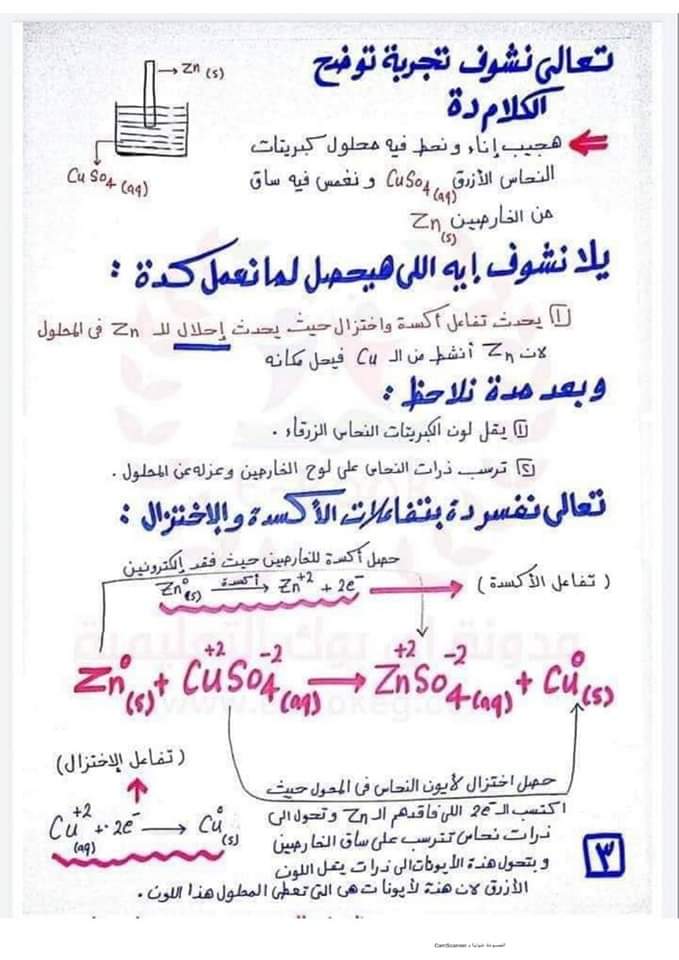 تعالى نشوف تجربة توضح
الكلام دة
Zn (s)
CuSo4 (aq)
هجيب إناء و نحط فيه محلول كبريتات
النحاس الأزرق CuSO4(aq) و نغمس فيه ساق
من الخارصين Zn(s)
يلا نشوف إيه اللى هيحصل لما نعمل كدة :
١ يحدث تفاعل أكسدة واختزال حيث يحدث إحلال للـ Zn فى المحلول
لان Zn أنشط من الـ Cu فيحل مكانه
وبعد مدة نلاحظ :
١ يقل لون الكبريتات النحاس الزرقاء .
٢ ترسب ذرات النحاس على لوح الخارصين وعزله عن المحلول .
تعالى نفسر دة بتفاعلات الأكسدة والإختزال :
حصل أكسدة للخارصين حيث فقد إلكترونين
(تفاعل الأكسدة) Zn0(s) أكسدة→ Zn+2 + 2e-
Zn0(s) + Cu+2So4-2(aq) → Zn+2So4-2(aq) + Cu0(s)
(تفاعل الإختزال)
Cu+2(aq) + 2e- → Cu0(s)
حصل اختزال لأيون النحاس فى المحلول حيث
اكتسب الـ 2e- اللى فاقدهم الـ Zn وتحول الى
ذرات نحاس تترسب على ساق الخارصين
و بتحول هذة الأيونات الى ذرات يقل اللون
الأزرق لان هذة لأيونات هى التى تعطى المحلول هذا اللون .
٣
مدونة اى بوك التعليمية
CamScanner